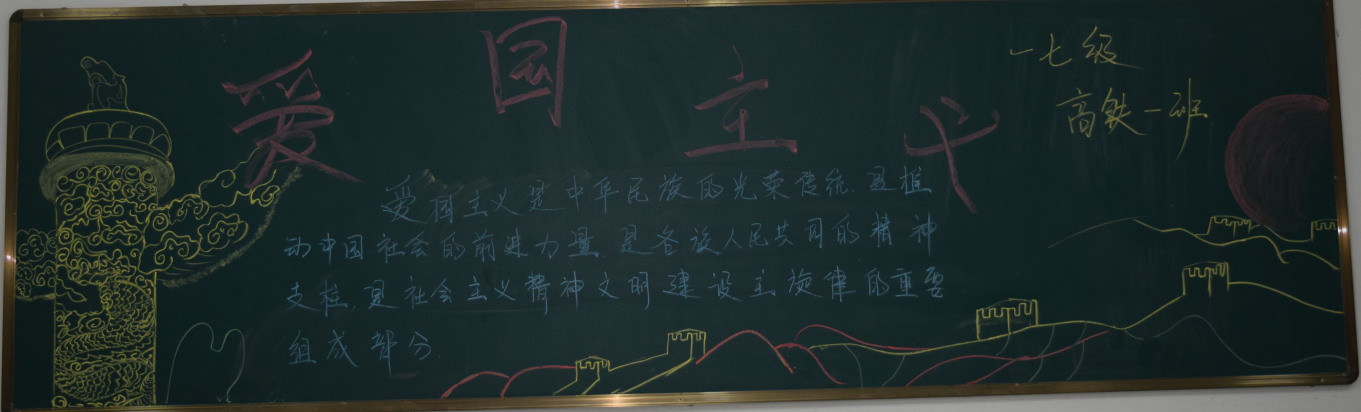 爱国主义
一七级
高铁一班
爱国主义是中华民族的光荣传统.是推
动中国社会的前进力量.是各族人民共同的精神
支柱.是社会主义精神文明建设主旋律的重要
组成部分